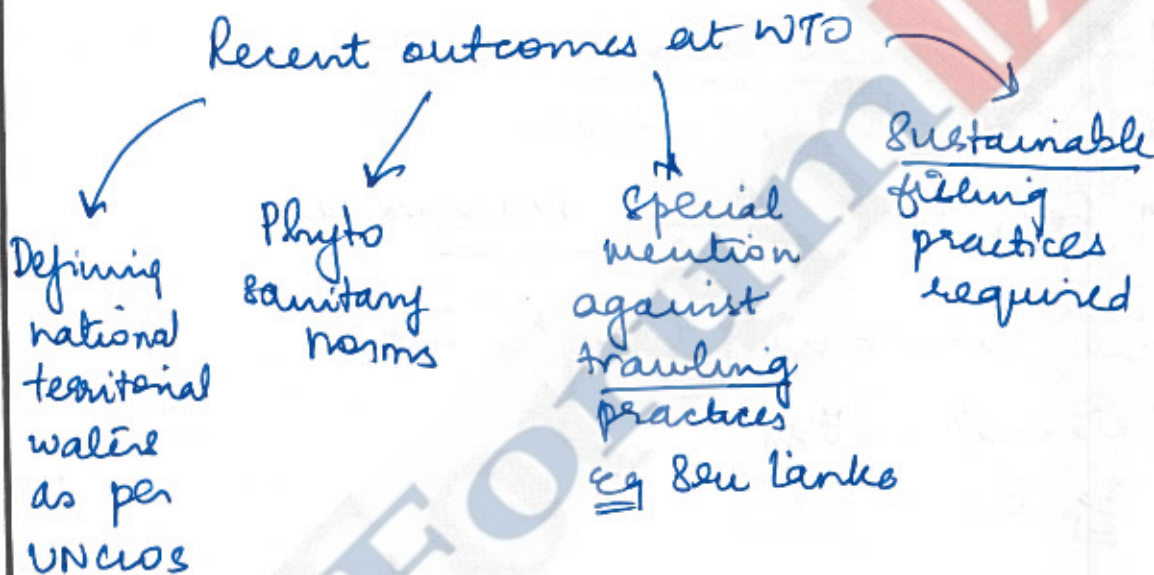 Recent outcomes at WTO
Defining
national
territorial
waters
as per
UNCLOS
Phyto
sanitary
norms
Special
mention
against
trawling
practices
eg Sri Lanka
Sustainable
fishing
practices
required
Forum